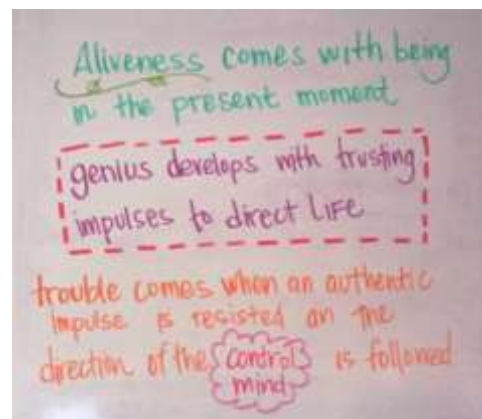 Aliveness comes with being
in the present moment
genius develops with trusting
impulses to direct LIFE
trouble comes when an authentic
impulse is resisted an the
direction of the control is followed
mind